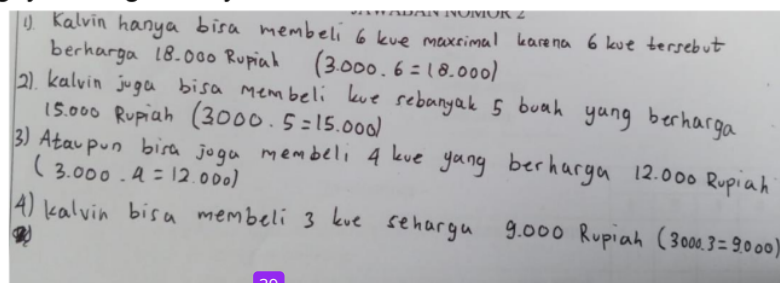 JAWABAN NOMOR 2
1). Kalvin hanya bisa membeli 6 kue maxsimal karena 6 kue tersebut
berharga 18.000 Rupiah (3.000.6=18.000)
2). kalvin juga bisa membeli kue sebanyak 5 buah yang berharga
15.000 Rupiah (3000.5=15.000)
3) Ataupun bisa juga membeli 4 kue yang berharga 12.000 Rupiah
(3.000.4=12.000)
4) kalvin bisa membeli 3 kue seharga 9.000 Rupiah (3000.3=9.000)